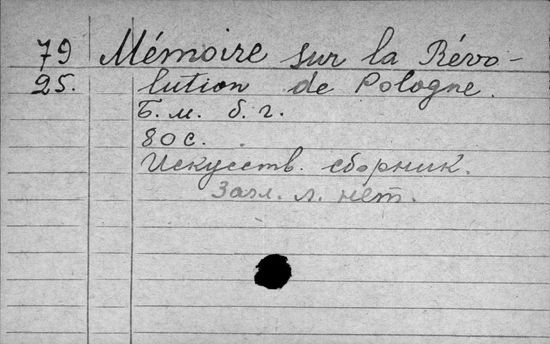 79 Mémoire sur la Révo-
25. lution de Pologne.
Б. м. б. г.
80 с.
Искусств. сборник.
Загл. л. нет.